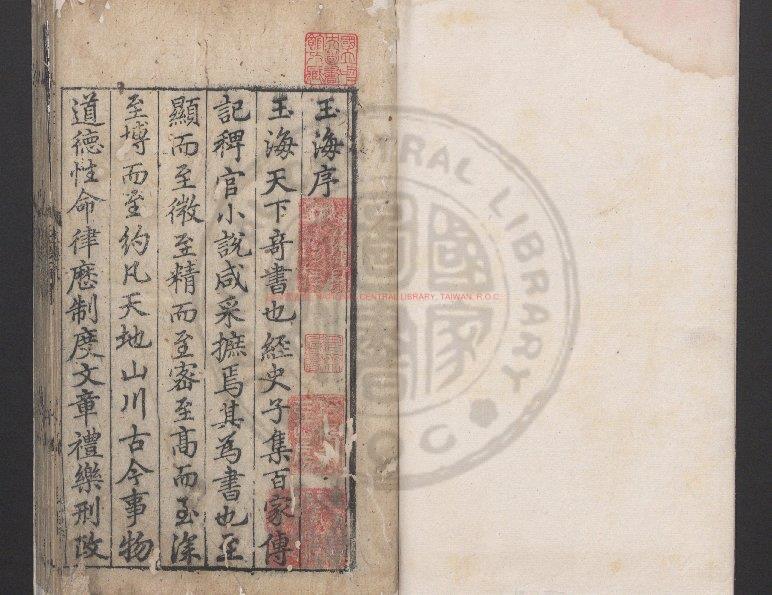 玉海序
玉海天下竒書也經史子集百家傳
記稗官小說咸采摭焉其為書也至
顯而至微至精而至宻至髙而至深
至博而至約凡天地山川古今事物
道徳性命律歷制度文章禮樂刑政
NATIONAL CENTRAL LIBRARY, TAIWAN, R.O.C.
CENTRAL LIBRARY